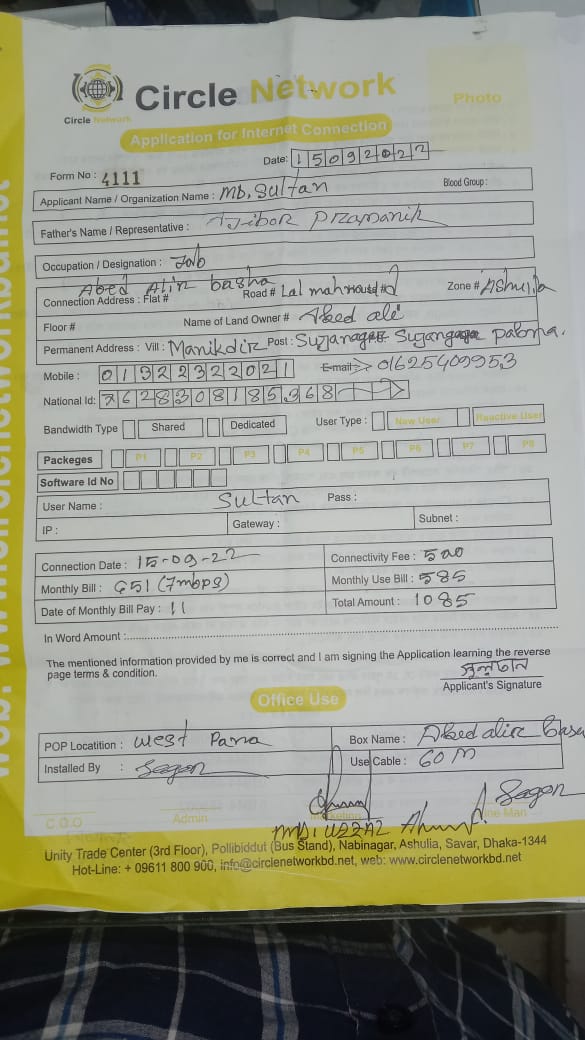 Circle Network
Circle Network
Photo
Application for Internet Connection
Date: 15092022
Form No : 4111
Applicant Name / Organization Name : MD, Sultan Blood Group :
Father's Name / Representative : Pramanik
Occupation / Designation : Job
Abed Alir basha
Connection Address : Flat # Road # Lal mah House # Zone # Ashulia
Floor # Name of Land Owner # Abed ali
Permanent Address : Vill : Manikdir Post : Sujanagar Pabna.
Mobile : 01322322021 E-mail 01625409953
National Id: 7628308185368
Bandwidth Type Shared Dedicated User Type : New User Reactive User
Packeges P1 P2 P3 P4 P5 P6 P7 P8
Software Id No
User Name : Sultan Pass :
IP : Gateway : Subnet :
Connection Date : 15-09-22 Connectivity Fee : 500
Monthly Bill : 651 (7mbps) Monthly Use Bill : 585
Date of Monthly Bill Pay : 11 Total Amount : 1085
In Word Amount :
The mentioned information provided by me is correct and I am signing the Application learning the reverse
page terms & condition.
সুলতান
Applicant's Signature
Office Use
POP Locatition : West Para Box Name : Abed alir basa
Installed By : Sagor Use Cable : 60 M
Sagor
C.O.O Admin Marketing Line Man
Unity Trade Center (3rd Floor), Pollibiddut (Bus Stand), Nabinagar, Ashulia, Savar, Dhaka-1344
Hot-Line: + 09611 800 900, info@circlenetworkbd.net, web: www.circlenetworkbd.net